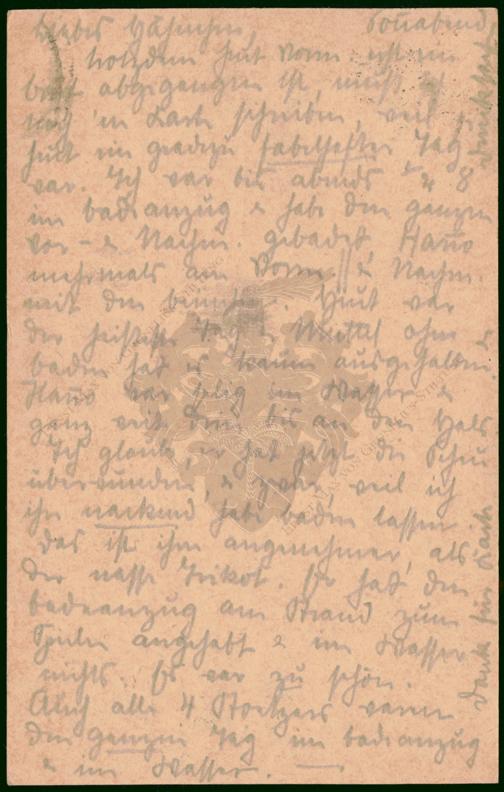 Liebes Häschen, Sonnabend
trotzdem heut Vorm. erst ein
brief abgegangen ist, muß ich
noch 'en Karte schreiben, weil
heut ein geradezu fabelhafter Tag
war. Ich war bis abends 8
im badeanzug & habe den ganzen
Vor- & Nachm. gebadet, Hanno
mehrmals am Vorm. & Nachm.
mit den beinchen. Heut war
der heißeste Tag. Mutti ohne
baden hat es kaum ausgehalten.
Hanno war selig im Wasser &
ganz weit drin bis an den Hals
Ich glaube, er hat jetzt die Scheu
überwunden, & zwar weil ich
ihn nackend habe baden lassen
das ist ihm angenehmer, als
der nasse Trikot. Er hat den
badeanzug am Strand zum
Spielen angehabt & im Wasser
nichts. Es war zu schön.
Auch alle 4 waren
den ganzen Tag im badeanzug
& im Wasser.
Danke für Karte